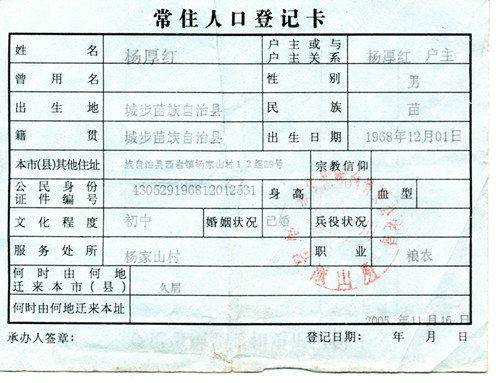 常住人口登记卡
姓名 杨厚红 户主或与户主关系 杨厚红 户主
曾用名 性别 男
出生地 城步苗族自治县 民族 苗
籍贯 城步苗族自治县 出生日期 1968年12月01日
本市(县)其他住址 族自治县西岩镇杨家山村1、2组29号 宗教信仰
公民身份证件编号 430529196812012531 身高 血型
文化程度 初中 婚姻状况 已婚 兵役状况
服务处所 杨家山村 职业 粮农
何时由何地迁来本市(县) 久居
何时由何地迁来本址 2005年11月16日
承办人签章: 登记日期: 年 月 日